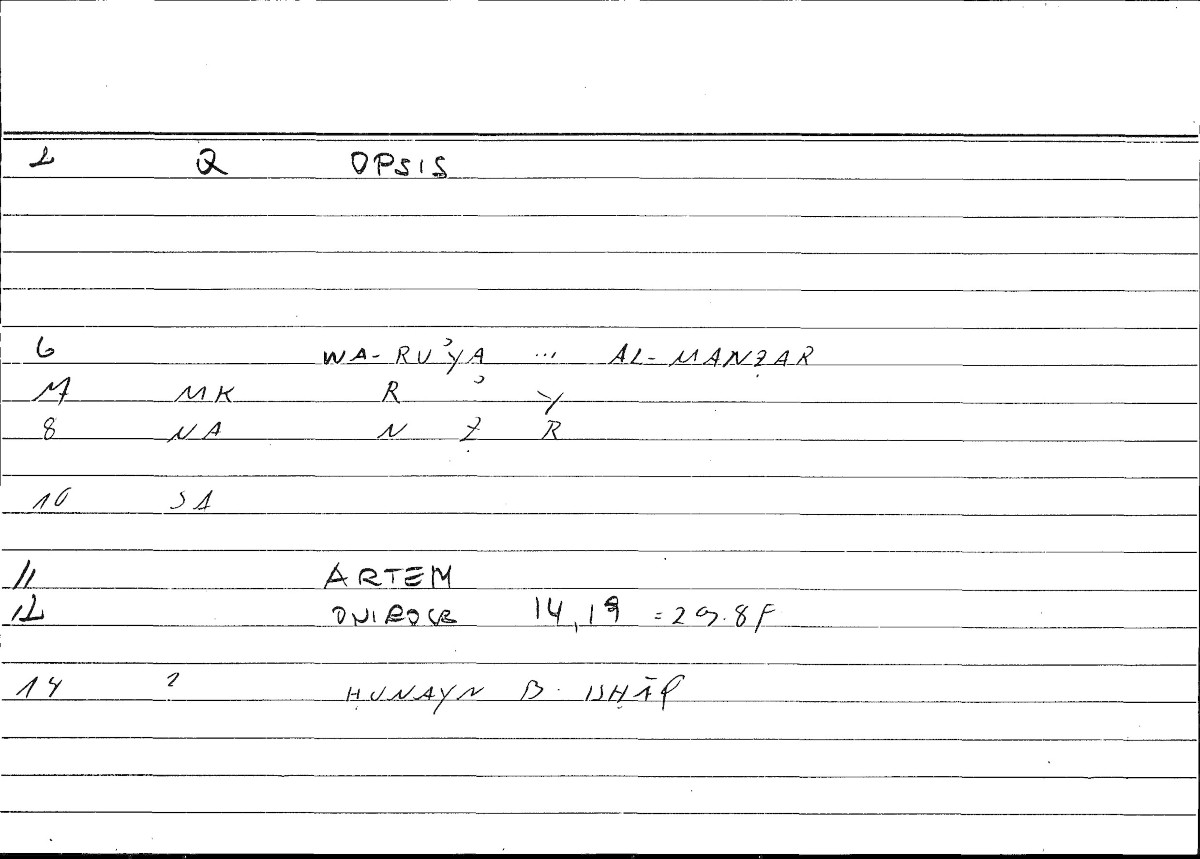 1 Q OPSIS
6 WA-RUʾYA ... AL-MANẒAR
7 MK R ʾ Y
8 NA N Ẓ R
10 SA
11 ARTEM
12 ONIROCR 14,19 =29.8F
14 2 ḤUNAYN B. ISḤĀQ